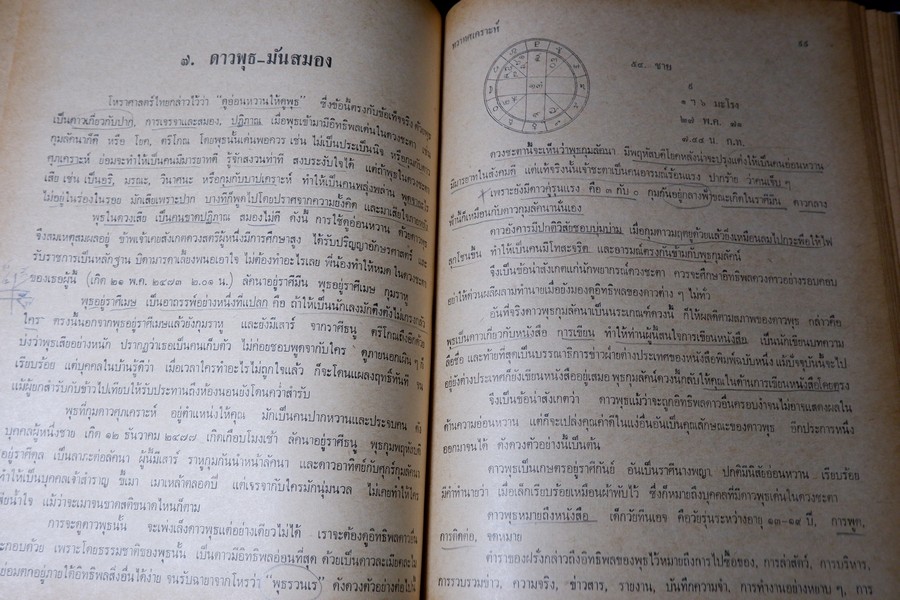 ๗. ดาวพุธ-มันสมอง
โหราศาสตร์ไทยกล่าวไว้ว่า “ดูอ่อนหวานให้ดูพุธ” ซึ่งข้อนี้ตรงกับข้อเท็จจริง
เป็นดาวเกี่ยวกับปาก, การเจรจาและสมอง, ปฏิภาณ เมื่อพุธเข้ามามีอิทธิพลเด่นในดวงชะตา เช่น
กุมลัคนาก็ดี หรือ โยค, ตรีโกณ โดยพุธนั้นเด่นพอควร เช่น ไม่เป็นประเป็นนิจ หรือกุมกับดาว
ศุภเคราะห์ ย่อมจะทำให้เป็นคนมีมารยาทดี รู้จักสงวนท่าที สงบระงับใจได้ แต่ถ้าพุธในดวงชะตา
เสีย เช่น เป็นอริ, มรณะ, วินาศนะ หรือกุมกับบาปเคราะห์ ทำให้เป็นคนพลุ่งพล่าน
ไม่อยู่ในร่องในรอย มักเสียเพราะปาก บางทีก็พูดไปโดยปราศจากความยั้งคิด และมาเสียใจภายหลัง
พุธในดวงเสีย เป็นคนขาดปฏิภาณ สมองไม่ดี ดังนี้ การใช้ดูอ่อนหวาน ด้วยดาวพุธ
จึงสมเหตุสมผลอยู่ ข้าพเจ้าเคยสังเกตดวงสตรีผู้หนึ่งมีการศึกษาสูง ได้รับปริญญาอักษรศาสตร์ และ
รับราชการเป็นหลักฐาน บิดามารดาเลี้ยงพนอเอาใจ ไม่ต้องทำอะไรเลย พี่น้องทำให้หมด ในดวงชะตา
ของเธอผู้นี้ (เกิด ๒๑ พ.ค. ๒๔๗๓ ๒.๐๑ น.) ลัคนาอยู่ราศีมีน พุธอยู่ราศีเมษ กุมราหู
พุธอยู่ราศีเมษ เป็นอาถรรพ์อย่างหนึ่งที่แปลก คือ ถ้าให้เป็นนักเลงมักดึงดังไม่เกรงกลัว
ใคร ดวงนี้นอกจากพุธอยู่ราศีเมษแล้วยังกุมราหู และยังมีเสาร์ จากราศีธนู ตรีโกณถึงอีกด้วย
บ่งว่าพุธเสียอย่างหนัก ปรากฏว่าเธอเป็นคนเก็บตัว ไม่ค่อยชอบพูดจากับใคร ดูภายนอกเผิน ๆ ก็
เรียบร้อย แต่บุคคลในบ้านรู้ดีว่า เมื่อเวลาใครทำอะไรไม่ถูกใจแล้ว ก็จะโดนแผลงฤทธิ์ทันที จน
แม้ผู้ยกสำรับกับข้าวไปเทียบให้รับประทานถึงห้องนอนยังโดนคว่ำสำรับ
พุธที่กุมดาวศุภเคราะห์ อยู่ตำแหน่งให้คุณ มักเป็นคนปากหวานและประจบคน ดัง
บุคคลผู้หนึ่งชาย เกิด ๑๒ ธันวาคม ๒๔๗๗ เกิดเกือบโมงเช้า ลัคนาอยู่ราศีธนู พุธกุมพฤหัสบดี
อยู่ราศีตุล เป็นลาภะต่อลัคนา ผู้นี้มีเสาร์ ราหูกุมกันนำหน้าลัคนา และดาวอาทิตย์กับศุกร์กุมลัคนา
ทำให้เป็นบุคคลเจ้าสำราญ ขี้เมา เมาเหล้าตลอดปี แต่เจรจากับใครมักนุ่มนวล ไม่เคยทำให้ใคร
เสียน้ำใจ แม้ว่าจะเมาจนขาดสติขนาดไหนก็ตาม
การจะดูดาวพุธนั้น จะเพ่งเล็งดาวพุธแต่อย่างเดียวไม่ได้ เราจะต้องดูอิทธิพลดาวอื่น
ประกอบด้วย เพราะโดยธรรมชาติของพุธนั้น เป็นดาวมีอิทธิพลอ่อนที่สุด ด้วยเป็นดาวละเมียดละไม
ย่อมตกอยู่ภายใต้อิทธิพลสิ่งอื่นได้ง่าย จนรับฉายาจากโหรว่า “พุธรวนเร” ดังดวงตัวอย่างต่อไปนี้
ทวาทศเคราะห์
๕๔. ชาย
๙
๑ ฯ ๖ มะโรง
๒๗ พ.ค. ๗๑
๗.๔๔ ป. ก.ท.
ดวงชะตานี้จะเห็นว่าพุธกุมลัคนา มีพฤหัสบดีโยคหลังน่าจะปรุงแต่งให้เป็นคนอ่อนหวาน
มีมารยาทในสังคมดี แต่แท้จริงนั้นเจ้าชะตาเป็นคนอารมณ์เรียนแรง ปากร้าย ว่าคนเจ็บ ๆ
เพราะยังมีดาวคู่รุนแรง คือ ๓ กับ ๐ กุมกันอยู่กลางฟ้าขณะเกิดในราศีมีน ดาวกลาง
ฟ้านี้ก็เหมือนกับดาวกุมลัคนานั่นเอง
ดาวอังคารมีปกตินิสัยชอบบุ่มบ่าม เมื่อกุมดาวมฤตยูด้วยแล้วยิ่งเหมือนลมไปกระพือให้ไฟ
ลุกโชนขึ้น ทำให้เป็นคนมีโทสะจริต และอารมณ์ตรงกันข้ามกับพุธกุมลัคน์
จึงเป็นข้อน่าสังเกตแก่นักพยากรณ์ดวงชะตา ควรจะศึกษาอิทธิพลดวงดาวอย่างรอบคอบ
อย่าให้ด่วนผลีผลามทำนายเมื่อยังมองดูอิทธิพลของดาวต่าง ๆ ไม่ทั่ว
อันที่จริงดาวพุธกุมลัคนาเป็นนระเกณฑ์ดวงนี้ ก็ให้ผลดีตามสภาพของดาวพุธ กล่าวคือ
พุธเป็นดาวเกี่ยวกับหนังสือ การเขียน ทำให้ท่านผู้นี้สนใจการเขียนหนังสือ เป็นนักเขียนบทความ
ลือชื่อ และท้ายที่สุดเป็นบรรณาธิการข่าวฝ่ายต่างประเทศของหนังสือพิมพ์ฉบับหนึ่ง แม้ปัจจุบันนี้จะไป
อยู่ยังต่างประเทศก็ยังเขียนหนังสืออยู่เสมอ พุธกุมลัคน์ดวงนี้กลับให้คุณในด้านการเขียนหนังสือโดยตรง
จึงเป็นข้อน่าสังเกตว่า ดาวพุธแม้ว่าจะถูกอิทธิพลดาวอื่นครอบงำจนไม่อาจแสดงผลใน
ด้านความอ่อนหวาน แต่ก็จะเปล่งคุณค่าดีในแง่อื่นอันเป็นคุณลักษณะของดาวพุธ อีกประการหนึ่ง
ออกมาจนได้ ดังดวงตัวอย่างนี้เป็นต้น
ดาวพุธเป็นเกษตรอยู่ราศีกันย์ อันเป็นราศีนางพญา ปกตินิสัยอ่อนหวาน เรียบร้อย
มีคำทำนายว่า เมื่อเล็กเรียบร้อยเหมือนผ้าพับไว้ ซึ่งก็หมายถึงบุคคลที่มีดาวพุธเด่นในดวงชะตา
ดาวพุธหมายถึงหนังสือ เด็กวัยทีนเอจ คือวัยรุ่นระหว่างอายุ ๑๓-๑๙ ปี, การพูด,
การติดต่อ, จดหมาย
ตำราของฝรั่งกล่าวถึงอิทธิพลของพุธไว้หมายถึงการไปซื้อของ, การล่าสัตว์, การบริหาร,
การรวบรวมข่าว, ความจริง, ข่าวสาร, รายงาน, บันทึกความจำ, การทำงานอย่างหยาบ ๆ, การ